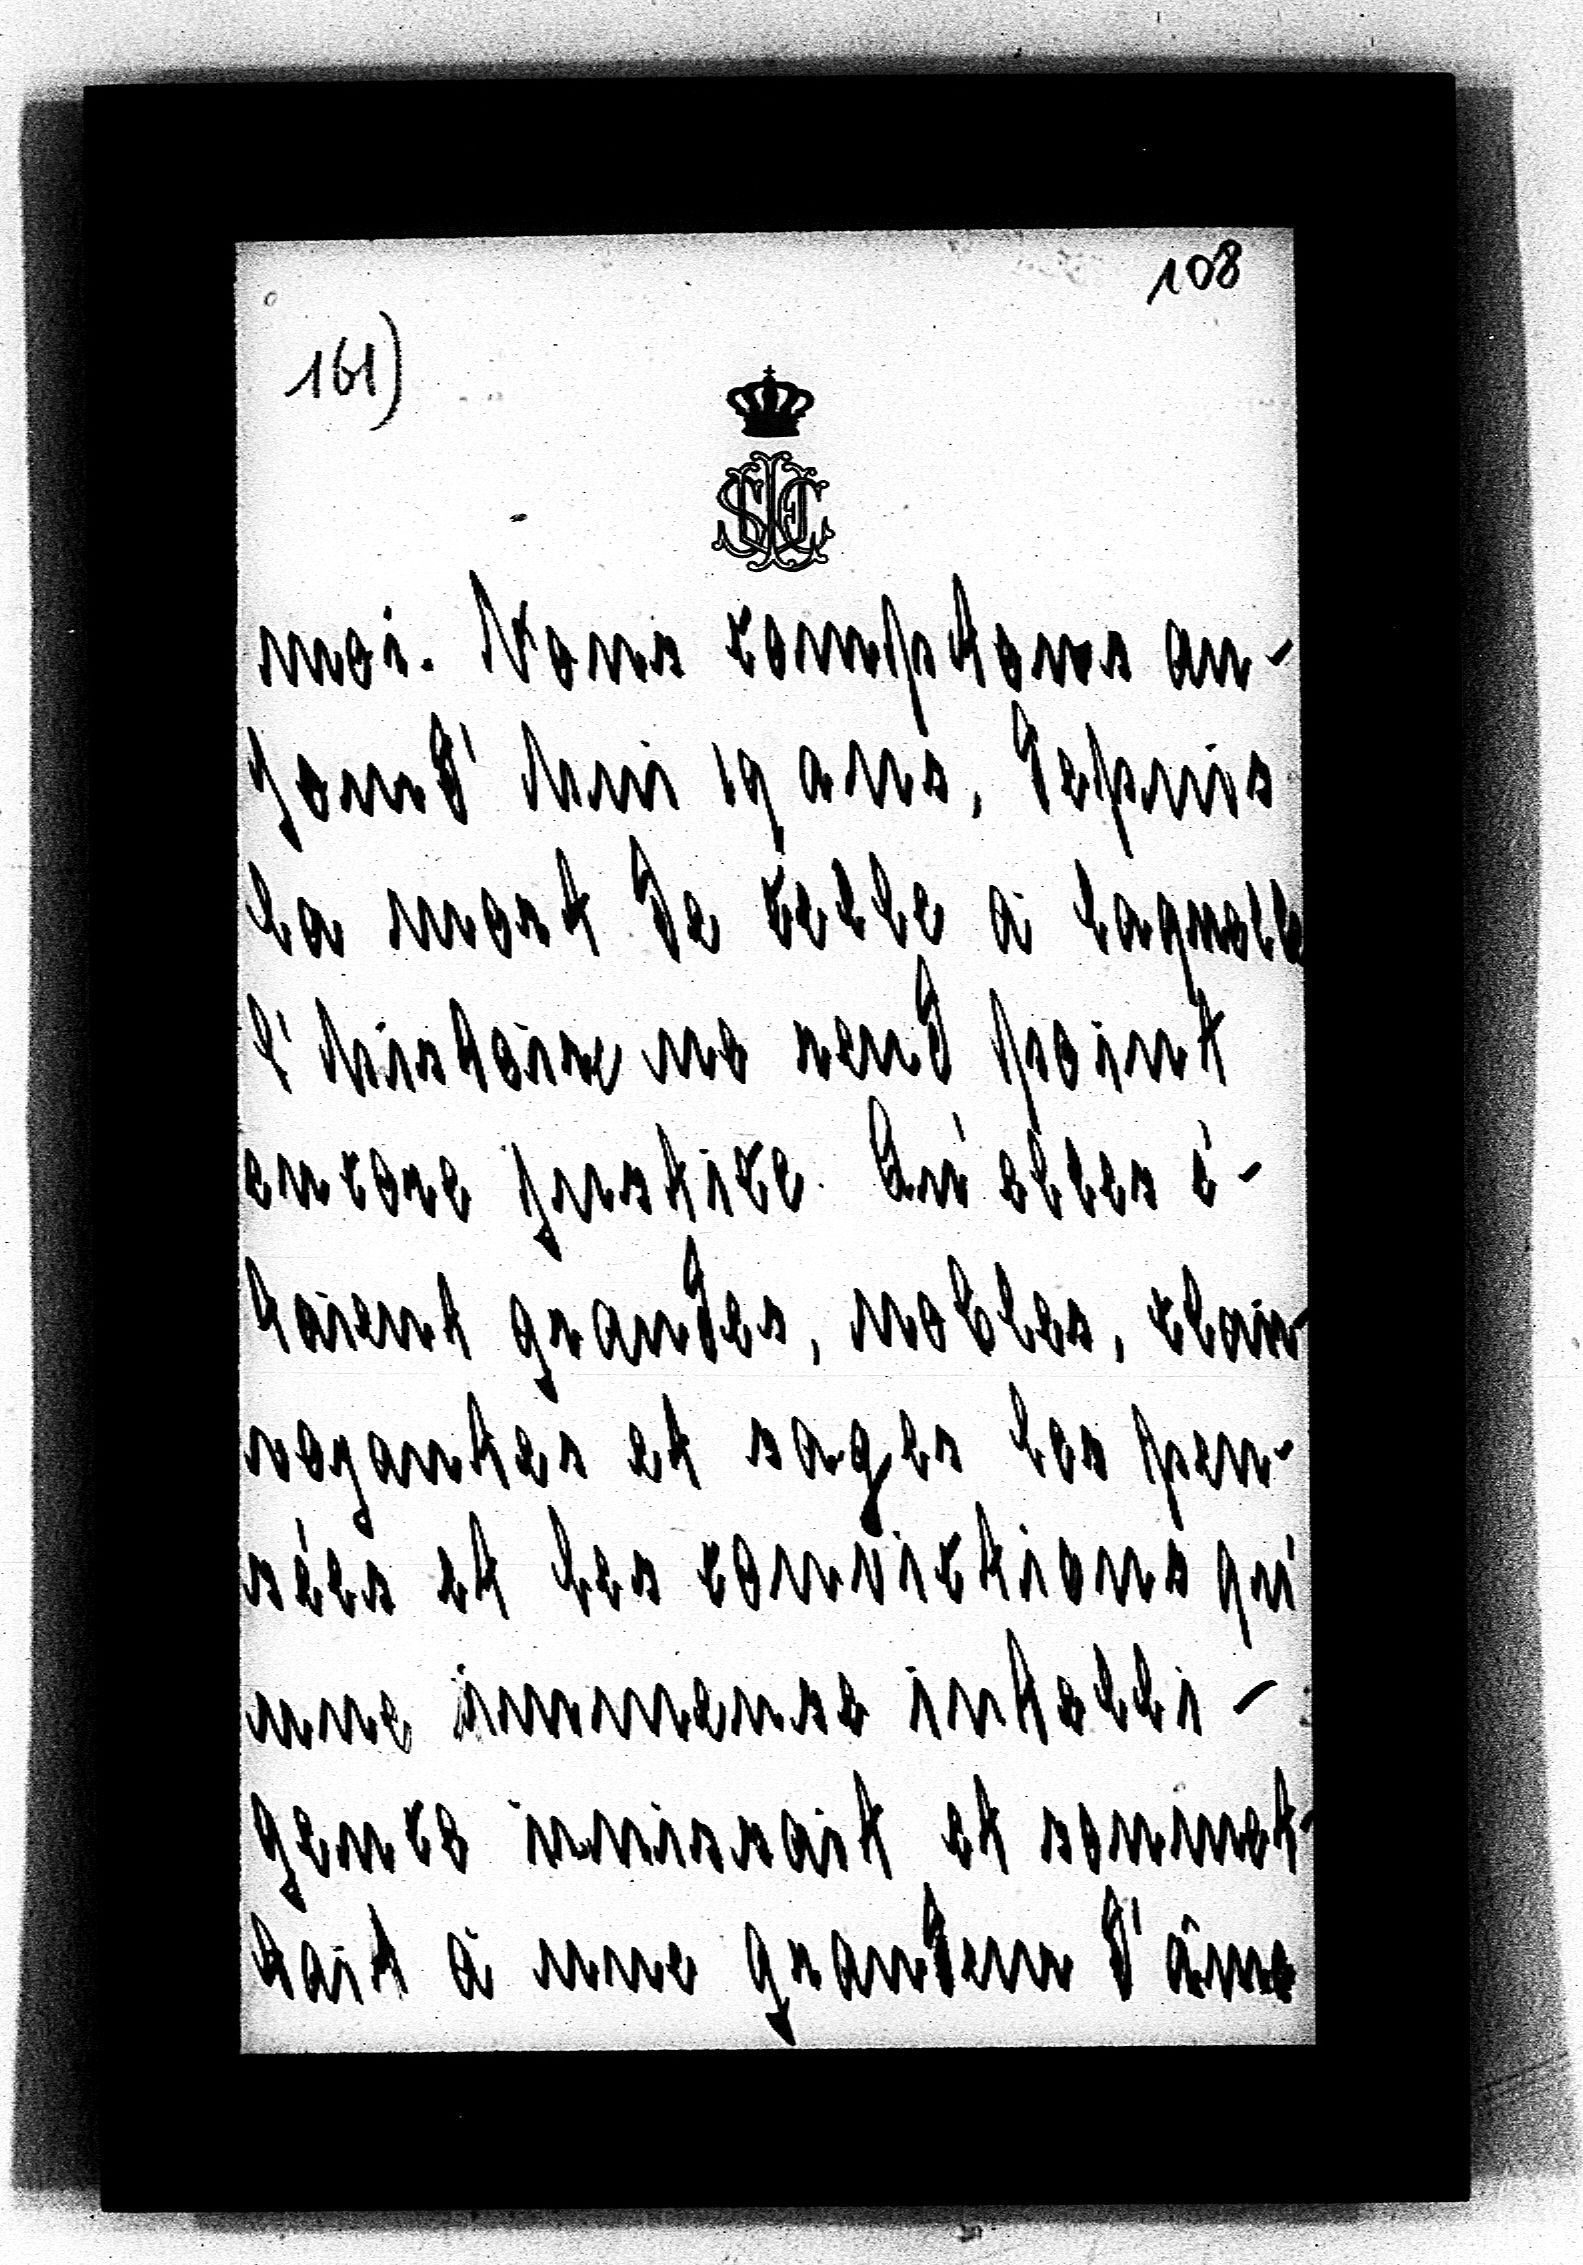 108
161)
moi. Nous comptons au-
jourd'hui 19 ans, depuis
la mort de celle à laquelle
l'histoire ne rend point
encore justice. Qu'elles é-
taient grandes, nobles, clair-
voyantes et sages les pen-
sées et les convictions qu'
une immense intelli-
gence unissait et soumet-
tait à une grandeur d'âme